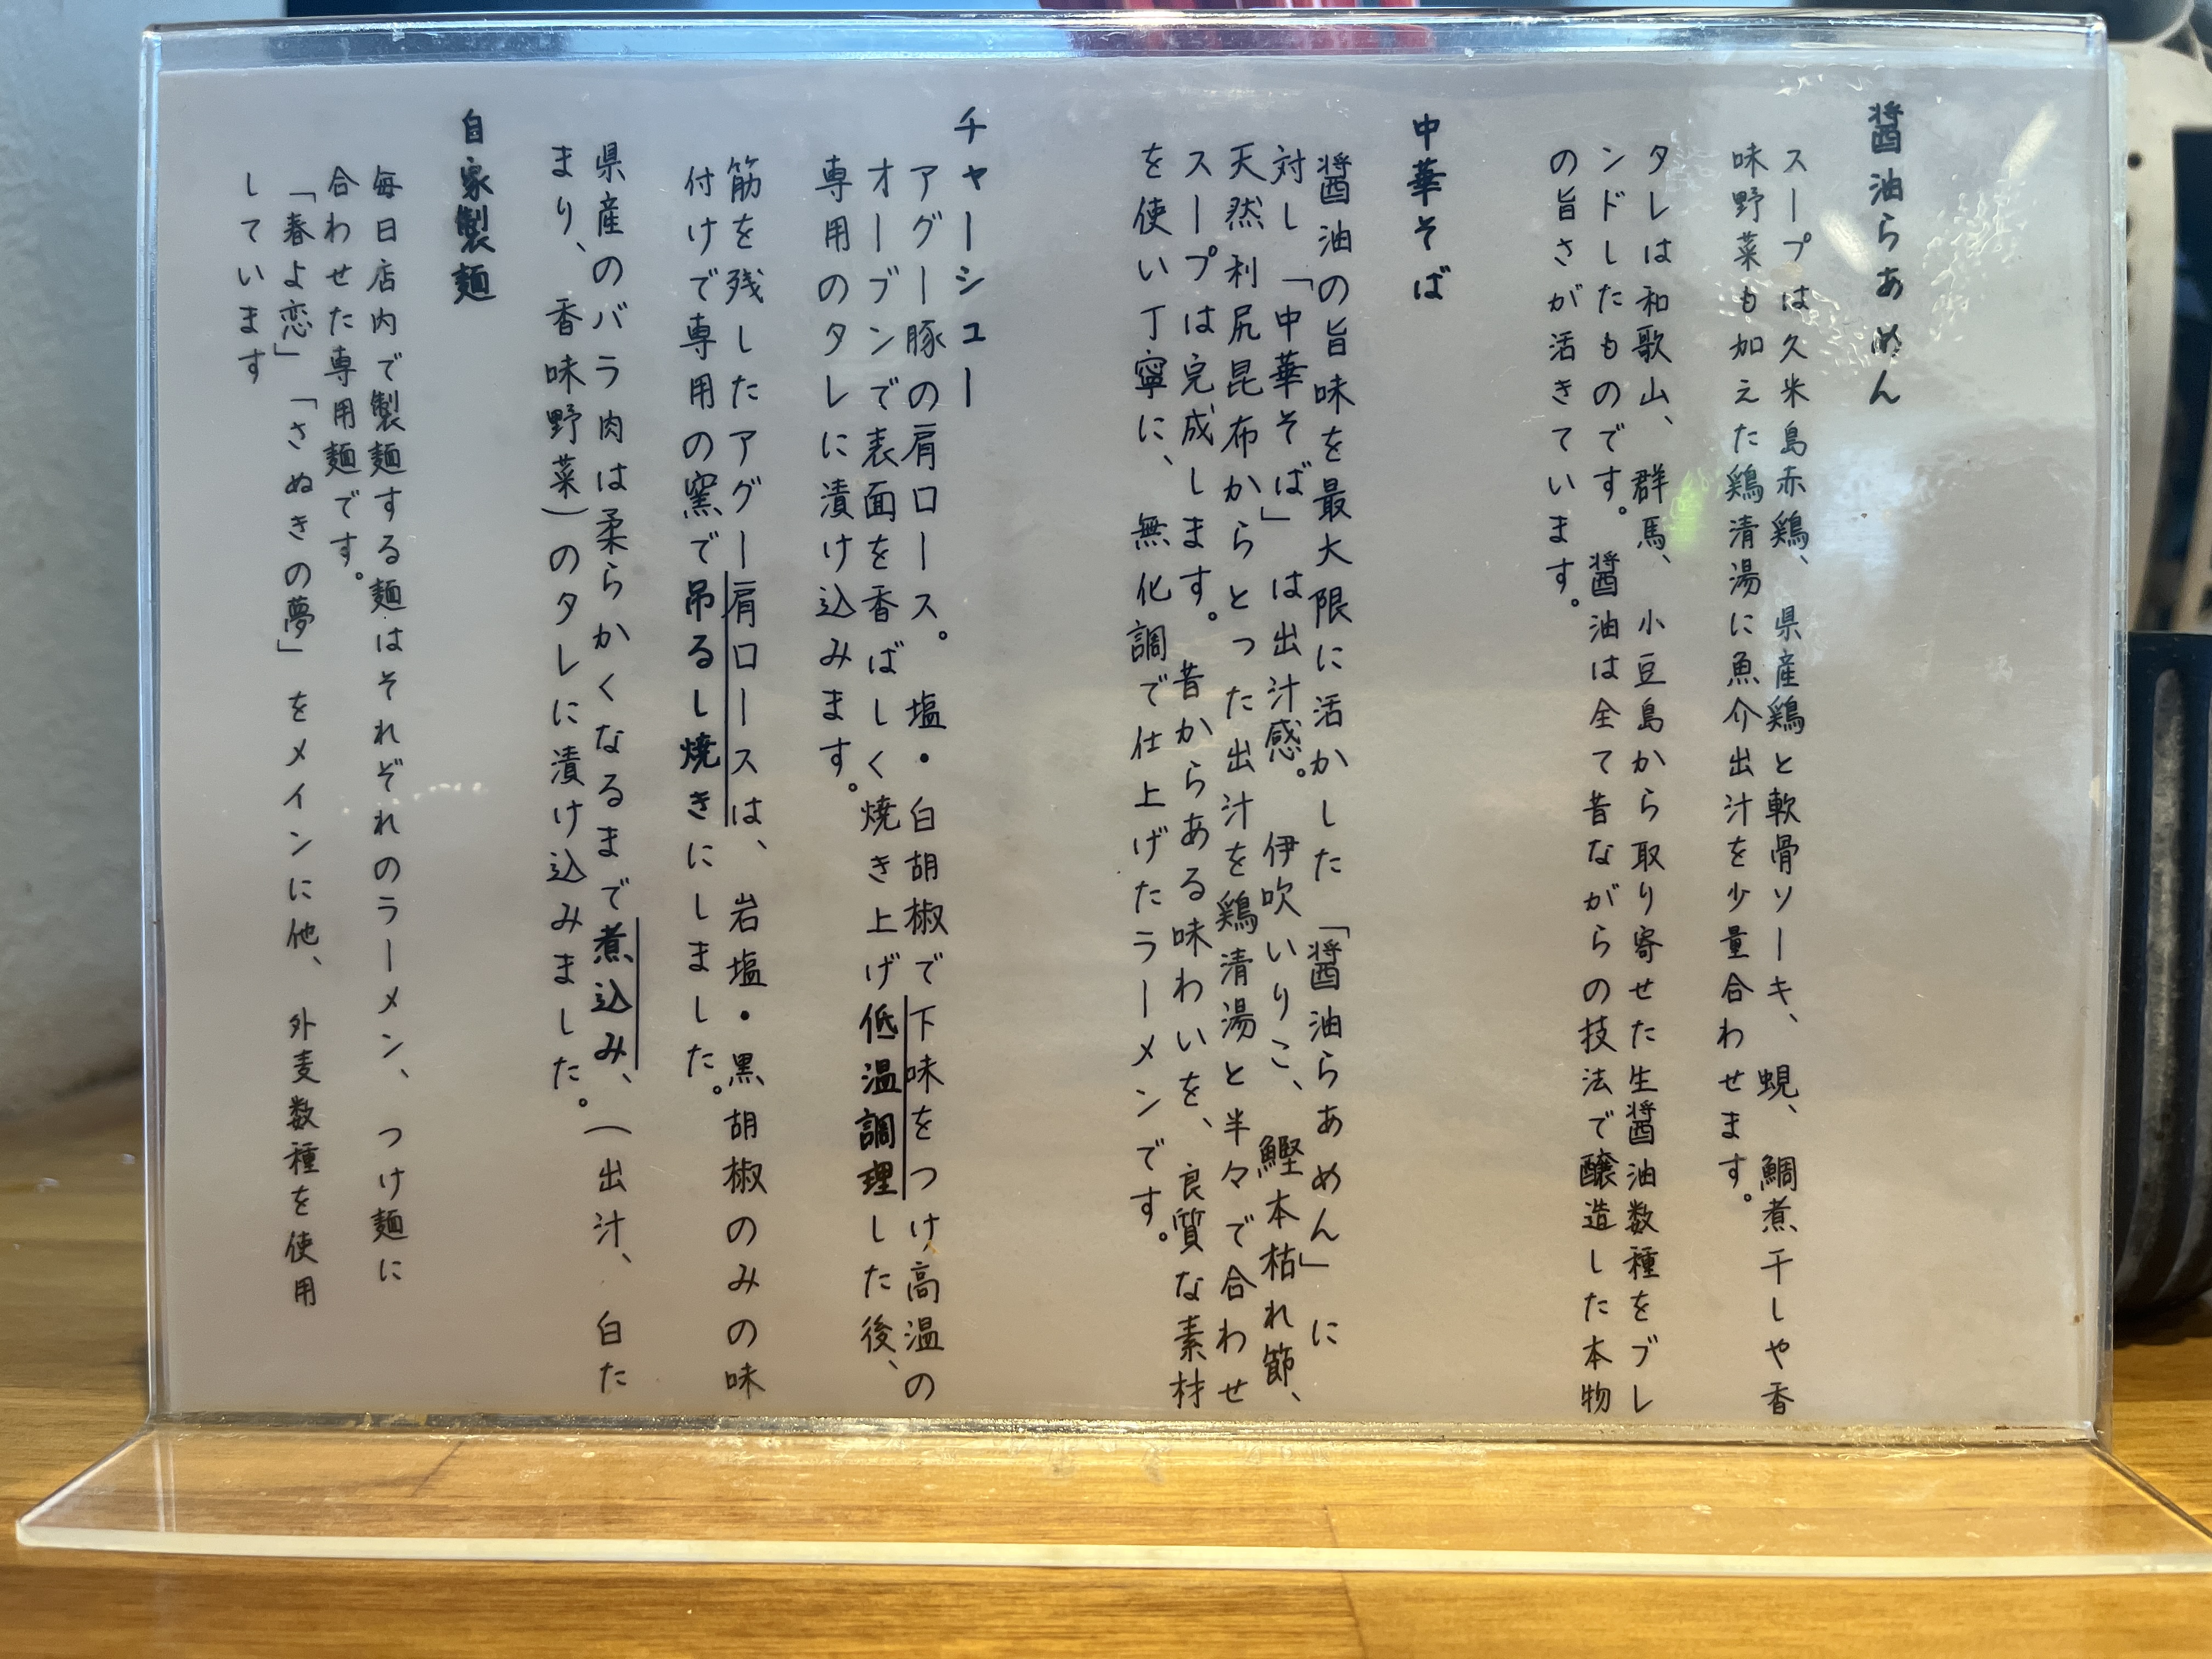 醤油らあめん
スープは久米島赤鶏、県産鶏と軟骨ソーキ、蜆、鯛煮干しや香
味野菜も加えた鶏清湯に魚介出汁を少量合わせます。
タレは和歌山、群馬、小豆島から取り寄せた生醤油数種をブレ
ンドしたものです。醤油は全て昔ながらの技法で醸造した本物
の旨さが活きています。
中華そば
醤油の旨味を最大限に活かした「醤油らあめん」に
対し「中華そば」は出汁感。伊吹いりこ、鰹本枯れ節、
天然利尻昆布からとった出汁を鶏清湯と半々で合わせ
スープは完成します。昔からある味わいを、良質な素材
を使い丁寧に、無化調で仕上げたラーメンです。
チャーシュー
アグー豚の肩ロース。塩・白胡椒で下味をつけ高温の
オーブンで表面を香ばしく焼き上げ低温調理した後、
専用のタレに漬け込みます。
筋を残したアグー肩ロースは、岩塩・黒胡椒のみの味
付けで専用の窯で吊るし焼きにしました。
県産のバラ肉は柔らかくなるまで煮込み、(出汁、白た
まり、香味野菜)のタレに漬け込みました。
自家製麺
毎日店内で製麺する麺はそれぞれのラーメン、つけ麺に
合わせた専用麺です。
「春よ恋」「さぬきの夢」をメインに他、外麦数種を使用
しています